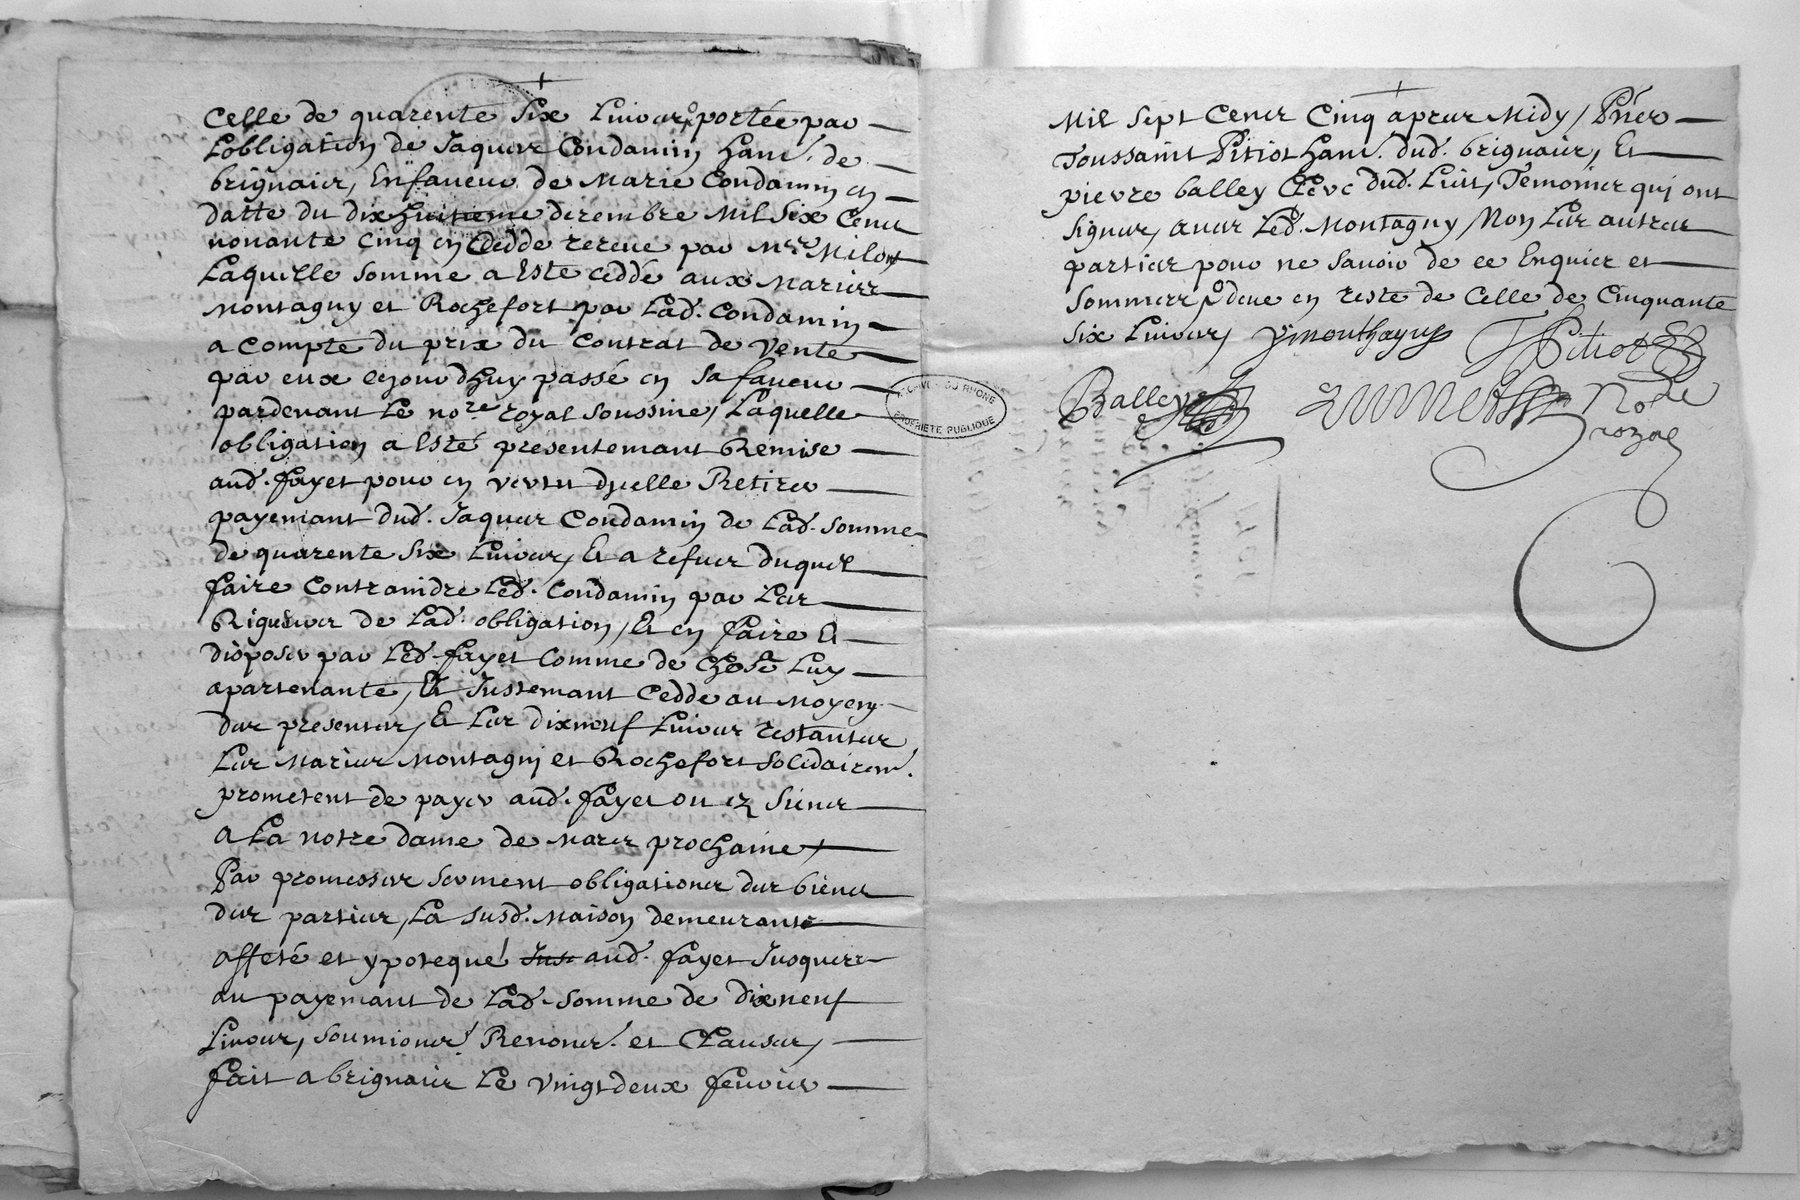 Celle de quarente six Livres portée par
Lobligation de Jaques Condamin habt. de
brignais, Enfaveur de Marie Condamin en
datte du dixhuitieme decembre Mil Six Cens
nonante Cinq en Cedde receue par Mer
Laquelle somme a Esté ceddé aux Maries
Montagny et Rochefort par Lad. Condamin
a Compte du prix du Contrat de Vente
par eux cejourdhuy passé en sa faveur
pardevant Le nore. royal Soussine, Laquelle
obligation a Esté presentemant Remise
aud. fayet pour en vertu dycelle Retirer
payemant dud. Jaques Condamin de Lad. Somme
de quarente Six Livres, Et a refus duquel
faire Contraindre Led. Condamin par Les
Rigueurs de Lad. obligation, Et en faire Et
disposer par Led. fayet Comme de Chose Luy
apartenante, Et Justemant Cedde au Moyen
des presentes, Et Les dixneuf Livres restantes
Les Maries Montagni et Rochefort Solidairemt.
prometent de payer aud. fayet ou es Siens
a La notre dame de Mars prochaine
Par promesses serment obligations des biens
des parties, La susd. Maison demeurante
affeté et ypotequé Jus aud. fayet Jusques
au payemant de Lad. Somme de dixneuf
Livres, soumions. Renons. et Clauses,
fait a brignais Le vingtdeux fevrier
Mil Sept Cens Cinq apres Midy, Pnts
Toussaint Pitiot habt. dud. brignais, Et
pierre balley Clerc dud. Lieu, Temoins qui ont
Signes, avec Led. Montagny, Non Les autres
parties pour ne savoir de ce Enquis et
Sommes, deue en reste de Celle de Cinquante
Six Livres
Pitiot
Balley
royal
ARCHIVES DU RHÔNE
PROPRIÉTÉ PUBLIQUE